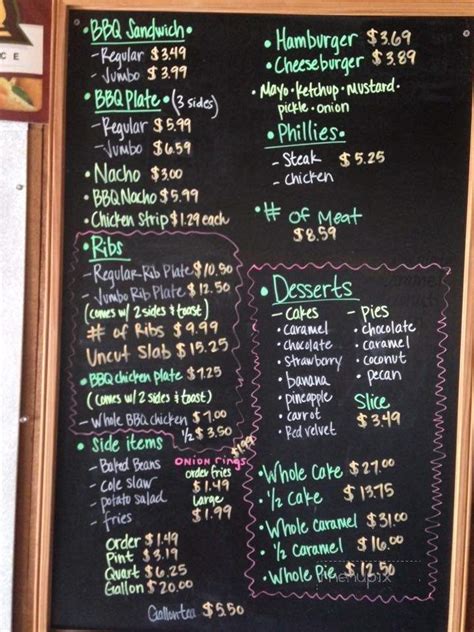 CE
• BBQ Sandwich
- Regular $3.49
- Jumbo $3.99
• BBQ Plate • (3 sides)
- Regular $5.99
- Jumbo $6.59
• Nacho $3.00
• BBQ Nacho $5.99
• Chicken Strip $1.29 each
• Ribs
- Regular Rib Plate $10.50
- Jumbo Rib Plate $12.50
(comes w/ 2 sides & toast)
# of Ribs $9.99
Uncut Slab $15.25
• BBQ chicken Plate $7.25
(comes w/ 2 sides & toast)
- Whole BBQ chicken $7.00
1/2 $3.50
• Side items
- Baked Beans
- cole slaw
- potato salad
- fries
Onion rings $1.99
order fries
$1.49
Large
$1.99
Order $1.49
Pint $3.19
Quart $6.25
Gallon $20.00
Gallon tea $5.50
• Hamburger $3.69
• Cheeseburger $3.89
• Mayo • Ketchup • mustard •
pickle • onion
• Phillies •
- Steak $5.25
- chicken
• # of Meat
$8.59
• Desserts
- Cakes
• caramel
• chocolate
• strawberry
• banana
• pineapple
• carrot
• Red velvet
- Pies
• chocolate
• caramel
• coconut
• pecan
Slice
$3.49
• Whole Cake $27.00
• 1/2 Cake $13.75
• Whole caramel $31.00
• 1/2 caramel $16.00
• Whole Pie $12.50
menupix